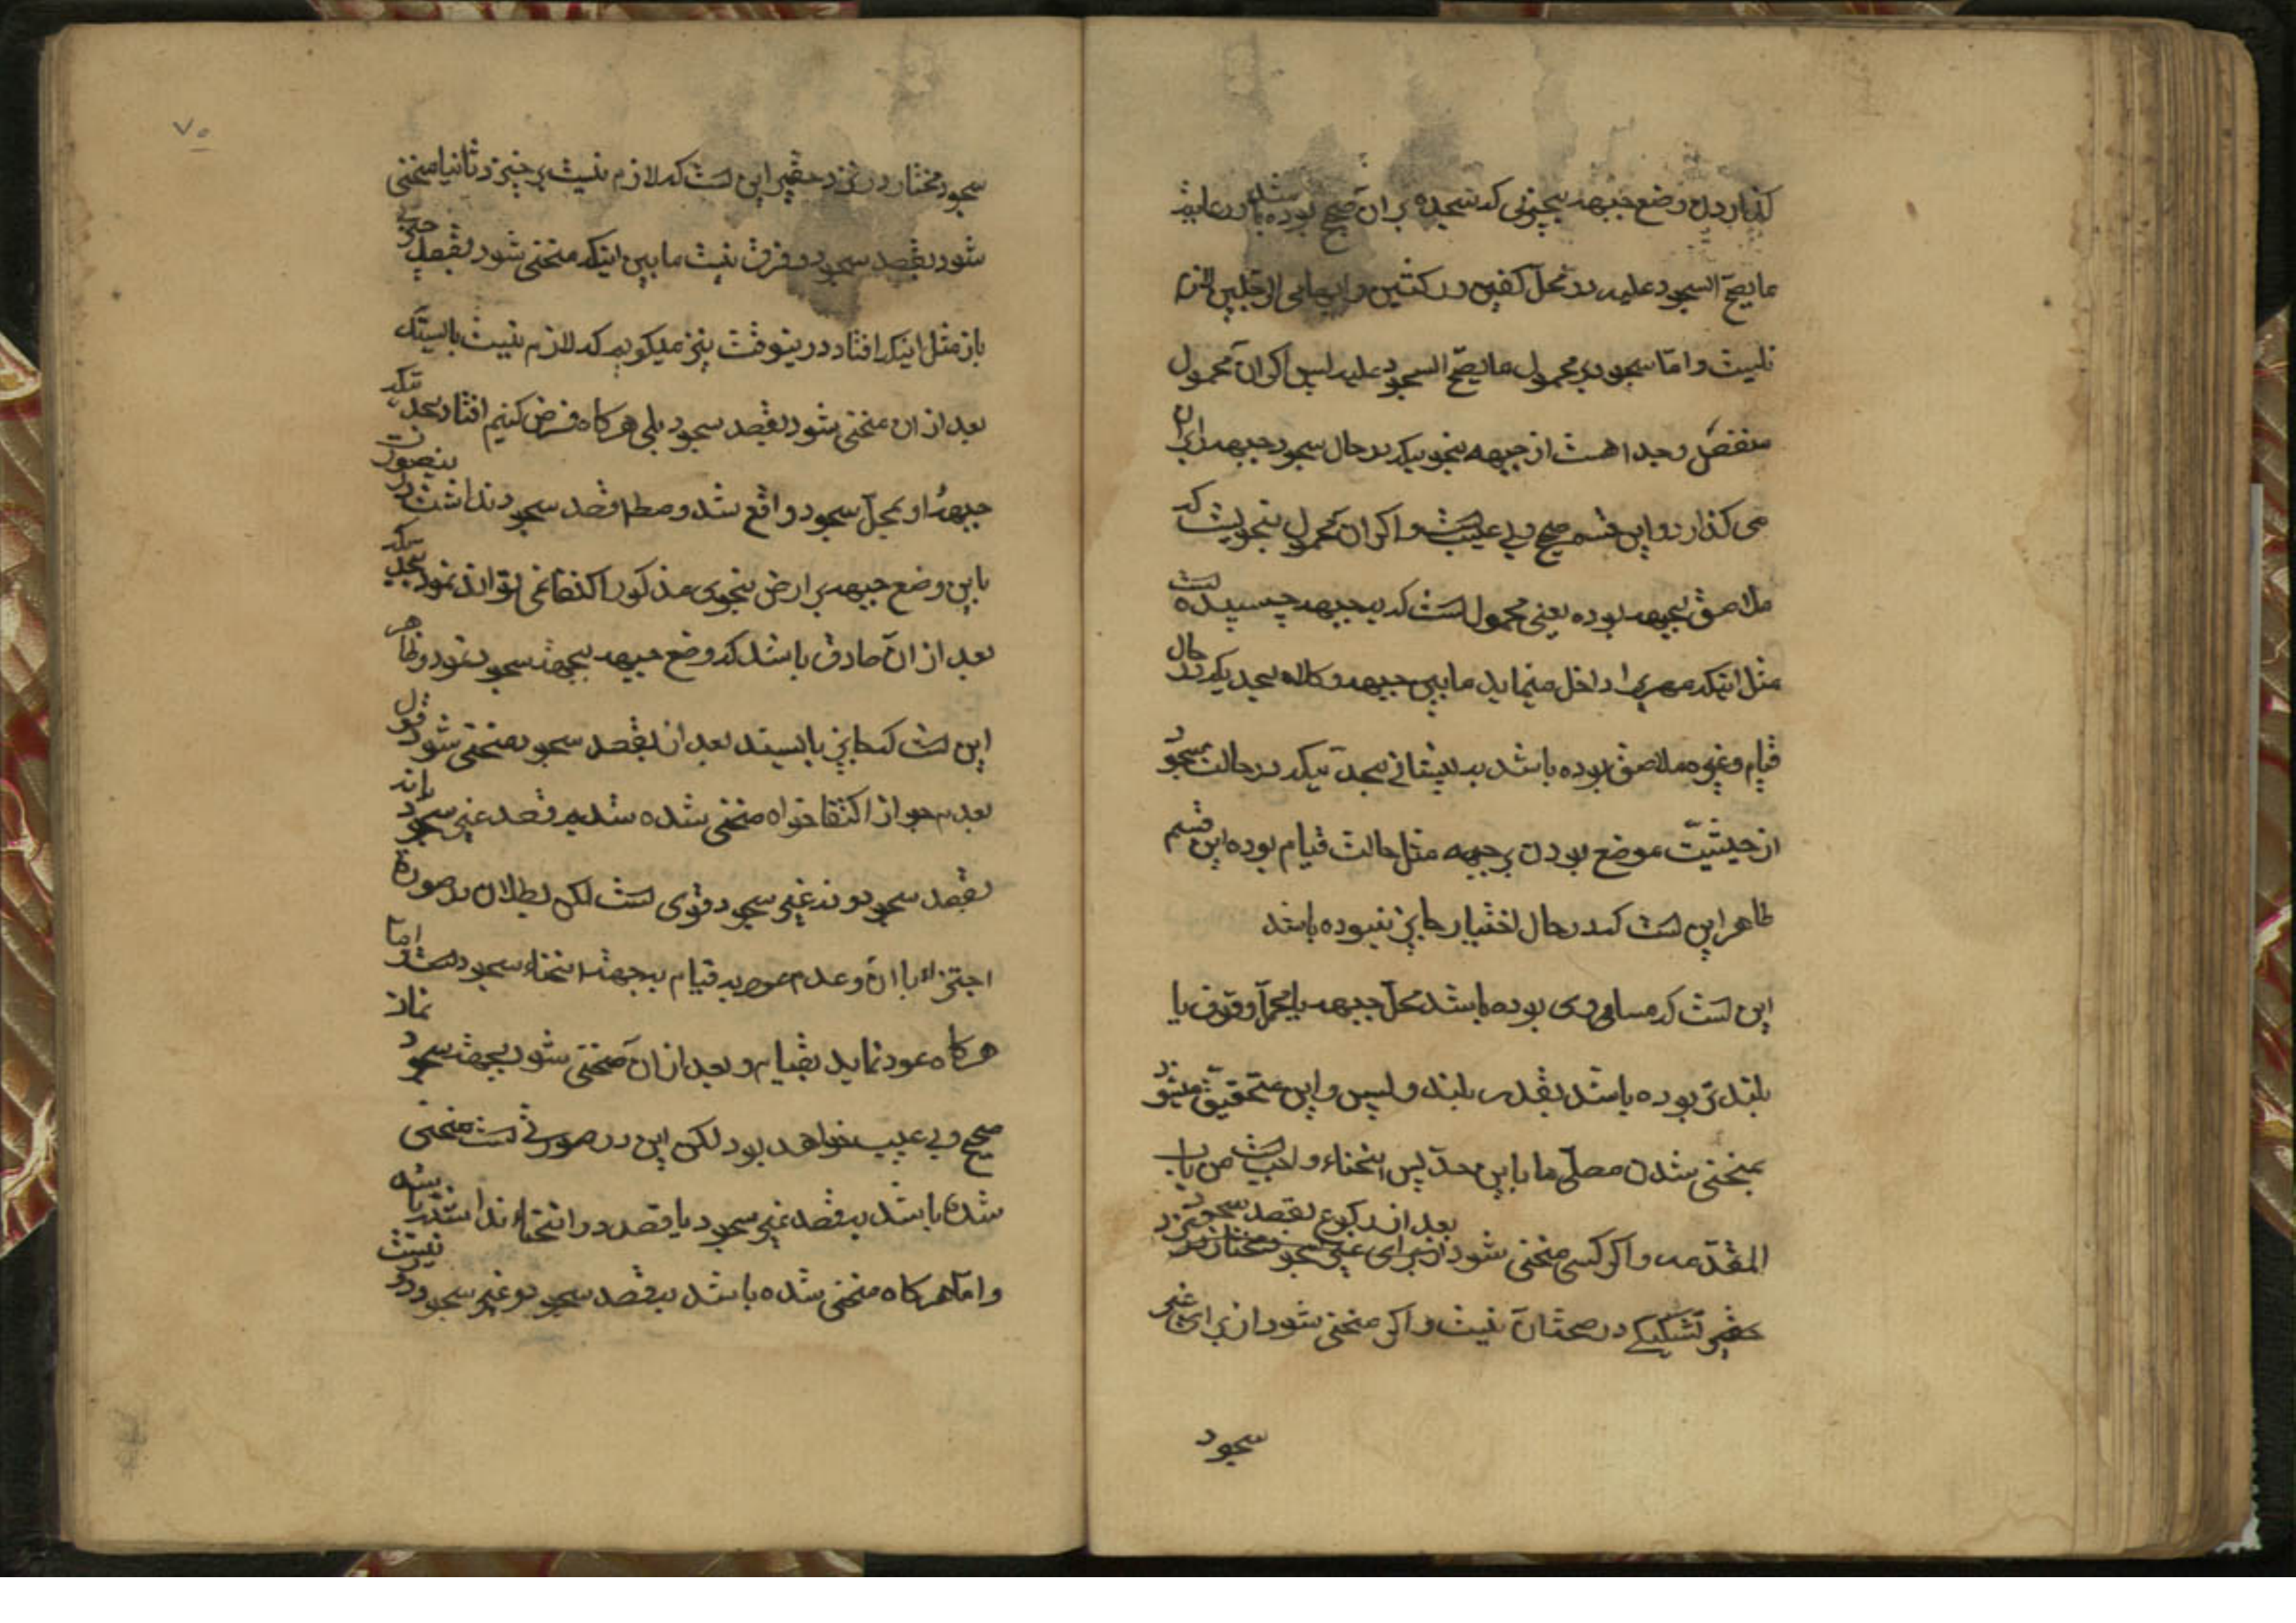 گذاردن وضع جبهه بچیزی که سجده بر آن صحیح بوده باشد و رعایة
ما یصح السجود علیه در محل کفین و رکبتین و ابهامی الرجلین لازم
نیست و اما سجود بر محمول ما یصح السجود علیه پس اگر آن محمول
منفصل و جدا هست از جبهه بنحویکه در حال سجود جبهه را بر آن
می گذارد و این قسم صحیح و بی عیب است و اگر آن محمول بنحویست که
ملاصق بجبهه بوده یعنی محمول است که بجبهه چسبیده است
مثل اینکه مهری را داخل مینماید ما بین جبهه و کلاه بحدیکه در حال
قیام و غیره ملاصق بوده باشد به پیشانی بحدیکه در حالت سجود
از حیثیت موضع بودن بر جبهه مثل حالت قیام بوده این قسم
ظاهر این است که در حال اختیار جایز نبوده باشد
این است که مساوی بوده باشد محل جبهه با محل وقوف یا
بلند تر بوده باشد بقدر بلند و لبس و این متحقق میشود
بمنحنی شدن مصلی ما باین حد پس انحناء واجب است من باب
المقدمه و اگر کسی منحنی شود از برای غیر سجود مختار در نزد
بعد از رکوع بقصد سجود
حقیر تشکیکی در صحت آن نیست و اگر منحنی شود از برای غیر
سجود
۷۰
سجود مختار در نزد حقیر این است که لازم نیست برخیزد ثانیا منحنی
شود بقصد سجود و فرق نیست ما بین اینکه منحنی شود بقصد چیزی
باز مثل اینکه افتاد درینوقت نیز میگویم که لازم نیست بایستد که
بعد از آن منحنی شود بقصد سجود بلی هرگاه فرض کنیم افتاد بحدیکه
جبهۀ او بمحل سجود واقع شد و مطلقا قصد سجود نداشت در ینصورت
باین وضع جبهه بر ارض بنحوی مذکور اکتفا نمی تواند نمود بحدیکه
بعد از آن صادق باشد که وضع جبهه بجهت سجود نمود و ظاهر
این است که جایز بایستد بعد از بقصد سجود منحنی شود و قول
بعدم جواز اکتفا خواه منحنی شده شد به قصد غیر سجود یا نه
بقصد سجود و نه غیر سجود قوی است لکن بطلان در صورة
اجتزاء با آن و عدم عود به قیام بجهت انحناء سجود است و اما
هرگاه عود نماید بقیام و بعد از آن منحنی شود بجهت سجود نماز
صحیح و بی عیب خواهد بود لکن این در صورتی است منحنی
شده باشد بقصد غیر سجود یا قصد در انحناء نداشته باشد
و اما هرگاه منحنی شده باشد بقصد سجود و غیر سجود دور نیست